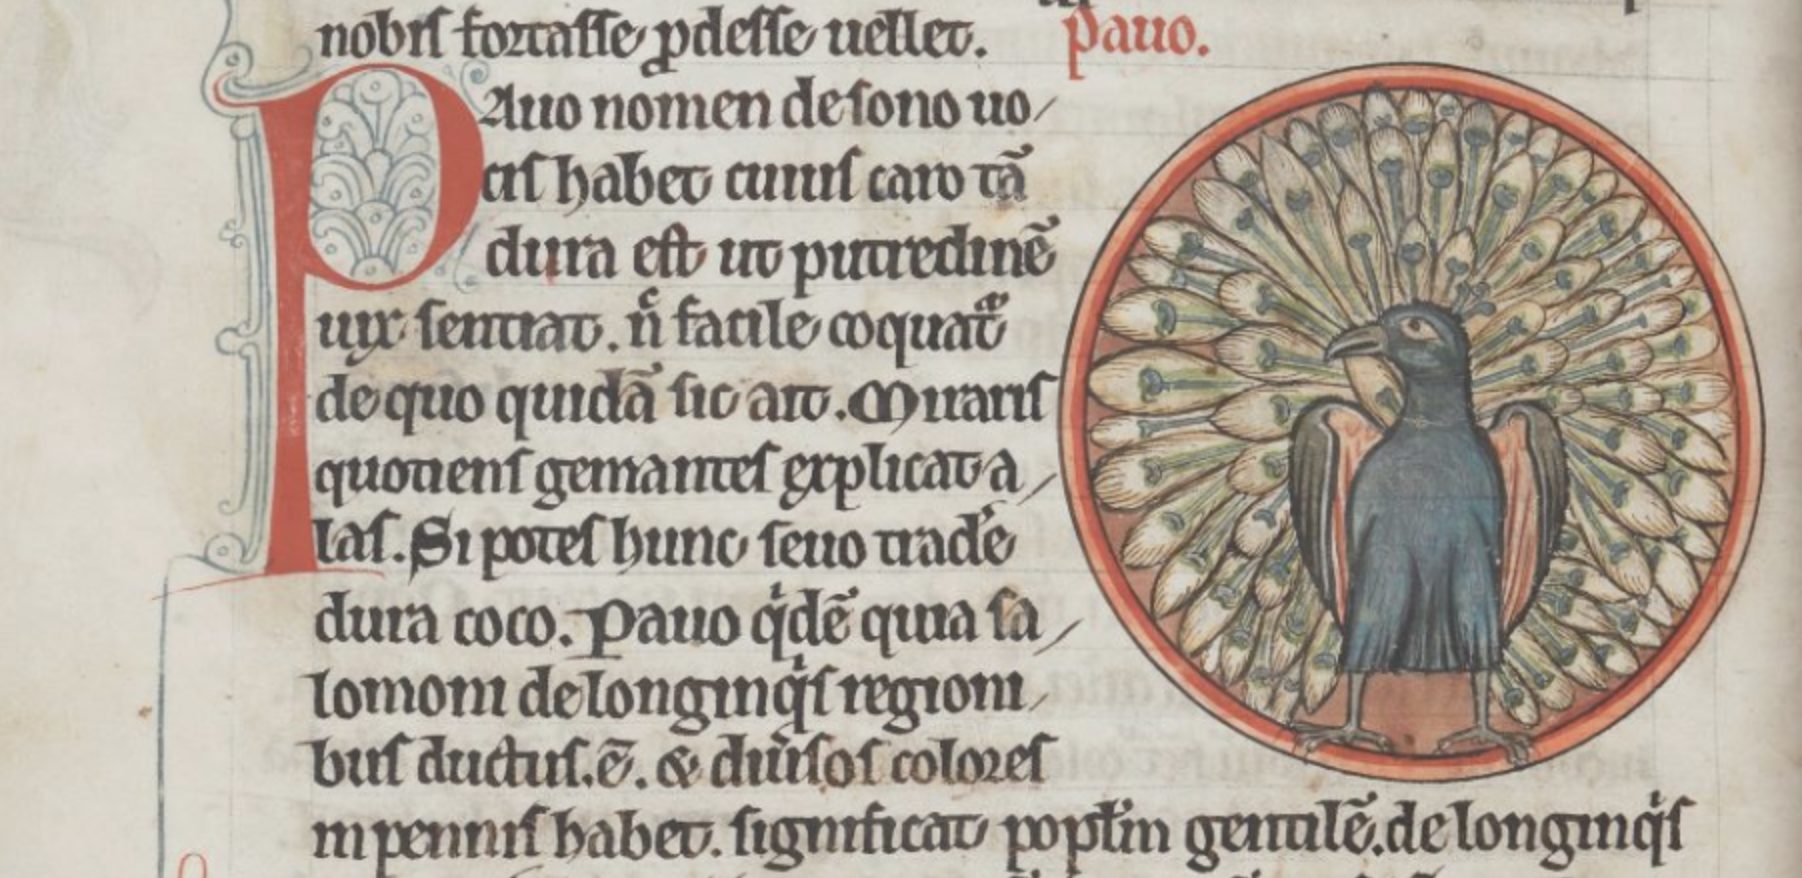 nobis fortasse ꝓdesse uellet. Pauo.
PAuo nomen de sono uo/
cis habet cuius caro tã
dura est ut putredinẽ
uix sentiat. nͨ̄ facile coquatᷓ
de quo quidã sic ait. Miraris
quotiens gemantes explicat a/
las. Si potes hunc seuo tradˀe
dura coco. Pauo qͥdẽ quia sa/
lomoni de longinqͥs regioni/
bus ductus.ẽ. & diuˀsos colores
in pennis habet. significat popłm gentilẽ. de longinqͥs